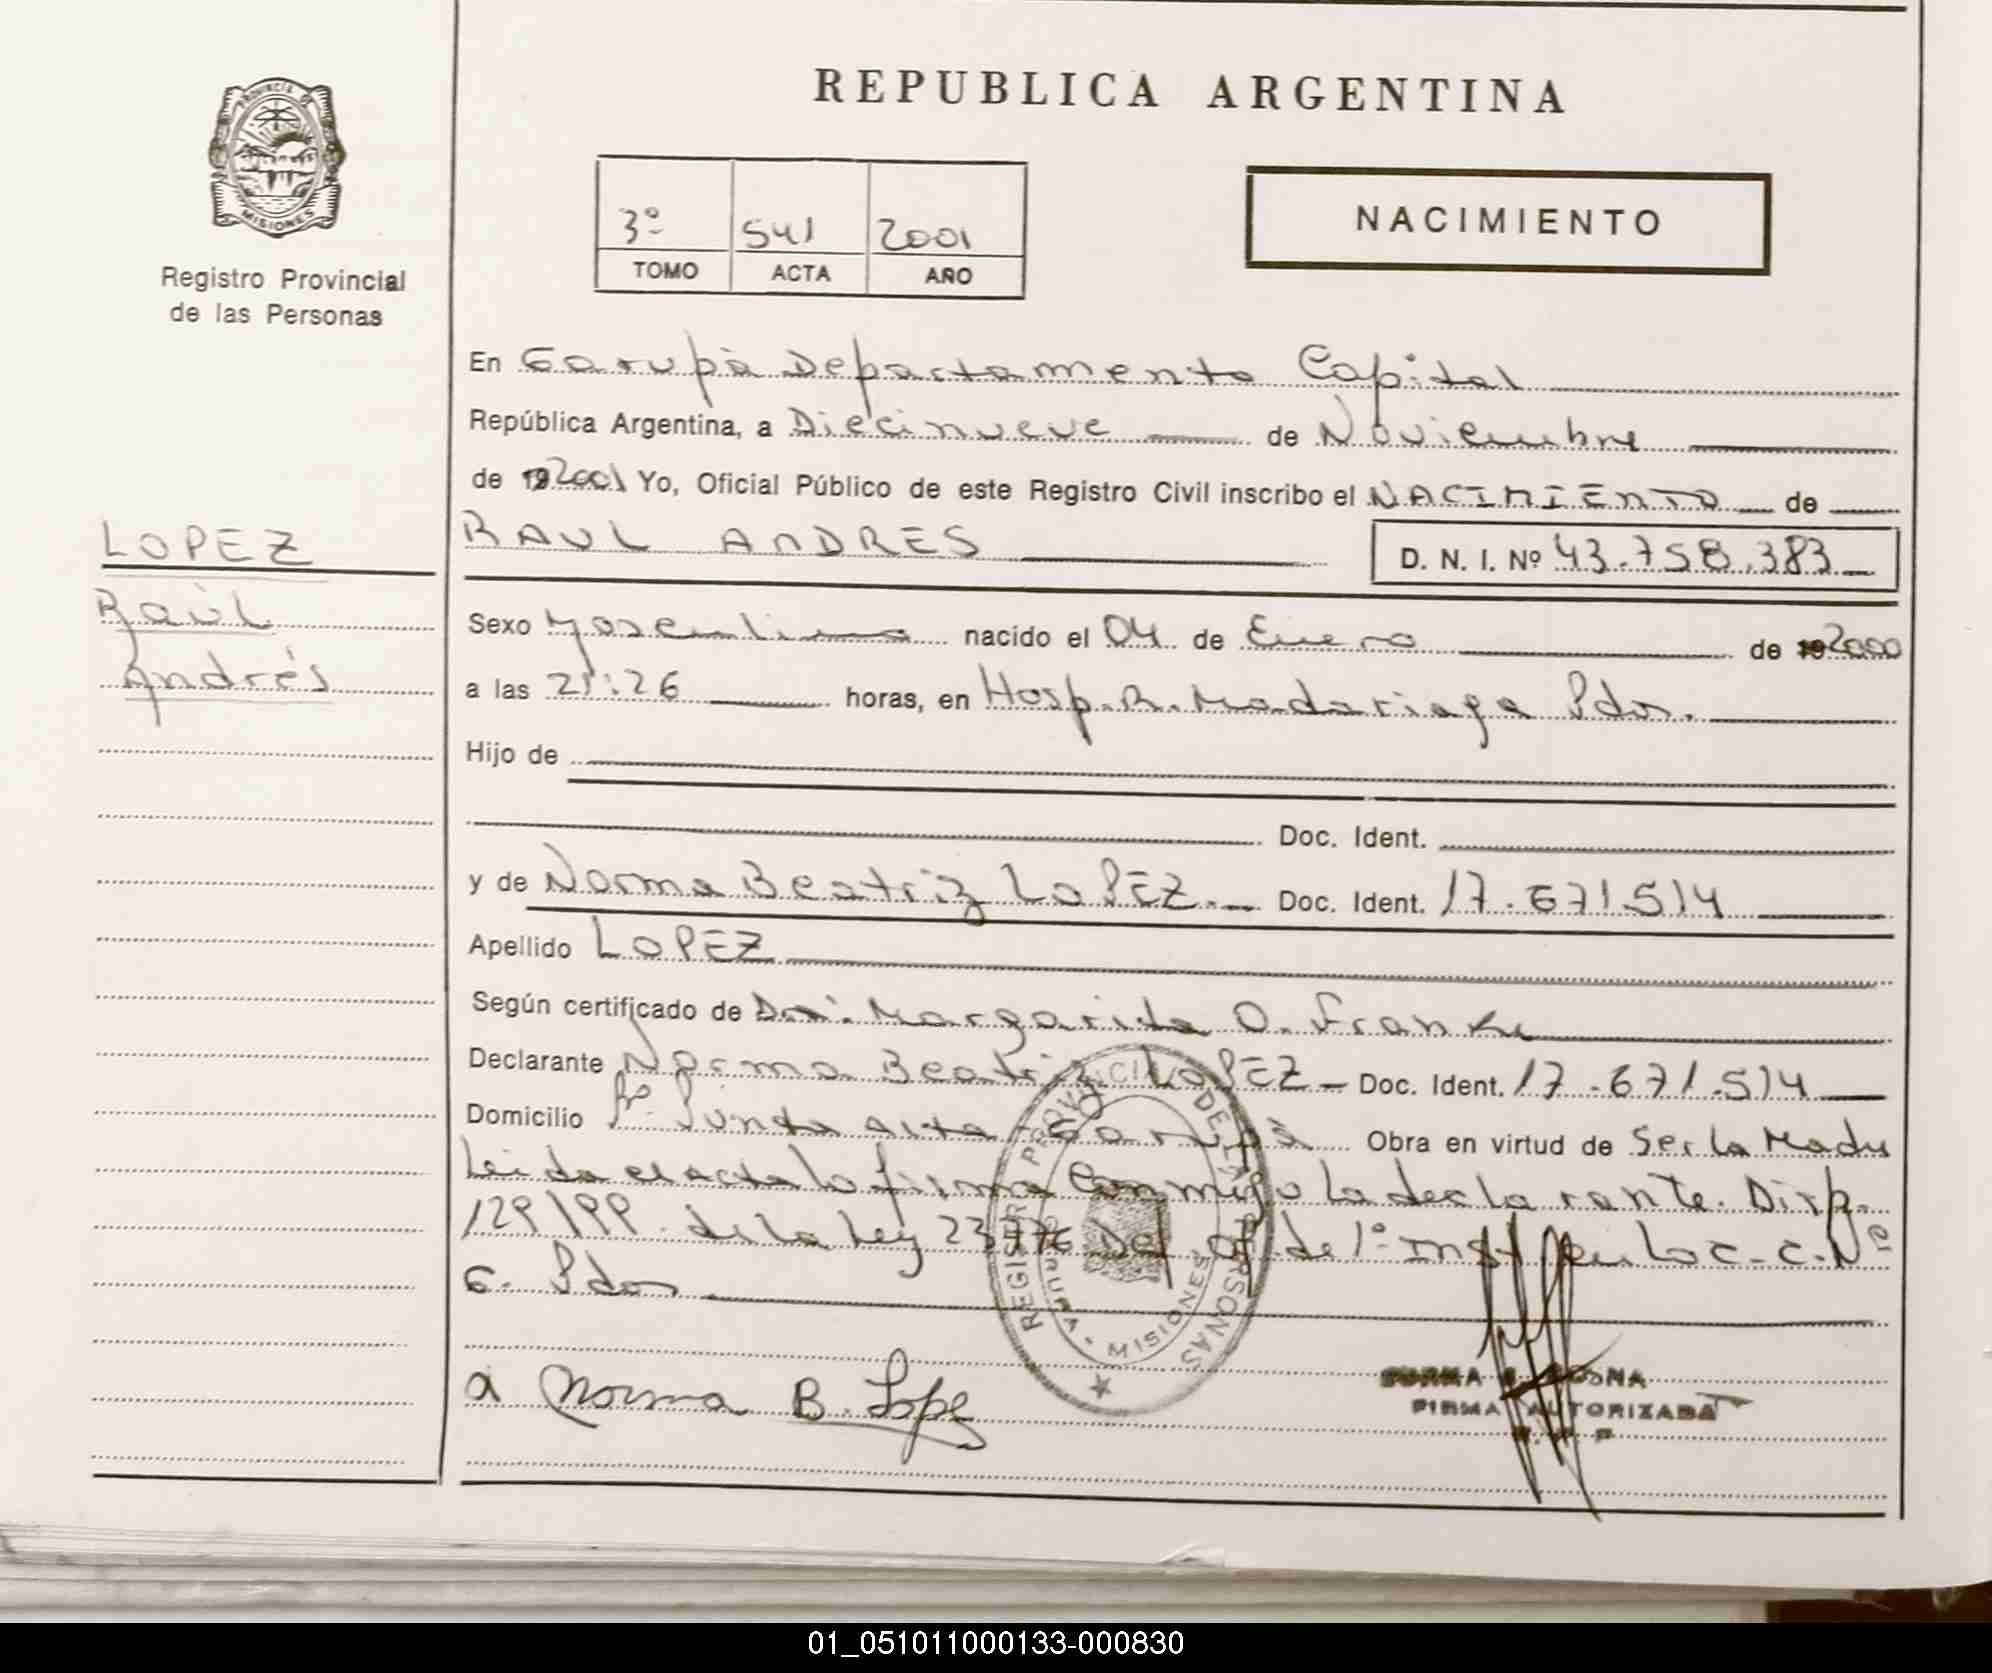 REPUBLICA ARGENTINA
PROVINCIA DE
MISIONES
Registro Provincial
de las Personas
3º 541 2001
TOMO ACTA AÑO
NACIMIENTO
En Garupà Departamento Capital
República Argentina, a Diecinueve de Noviembre
de 192001 Yo, Oficial Público de este Registro Civil inscribo el NACIMIENTO de
LOPEZ
RAUL ANDRES D. N. I. Nº 43.758.383
Raúl
Andrés
Sexo Masculino nacido el 04 de Enero de 192000
a las 21:26 horas, en Hosp. R. Madariaga Pdas.
Hijo de
Doc. Ident.
y de Norma Beatriz LOPEZ. Doc. Ident. 17.671.514
Apellido LOPEZ
Según certificado de Dra. Margarita O. Franke
Declarante Norma Beatriz LOPEZ Doc. Ident. 17.671.514
Domicilio Bº Punta Alta Garupà Obra en virtud de Ser la Madre
Leida el acta la firma conmigo la declarante. Disp.
129/99 de la Ley 23776 Del de 1º Inst en lo C. C. Nº
6. Pdas
REGISTRO PROVINCIAL DE LAS PERSONAS
MISIONES
a Norma B. Lopez
FIRMA AUTORIZADA
01_051011000133-000830